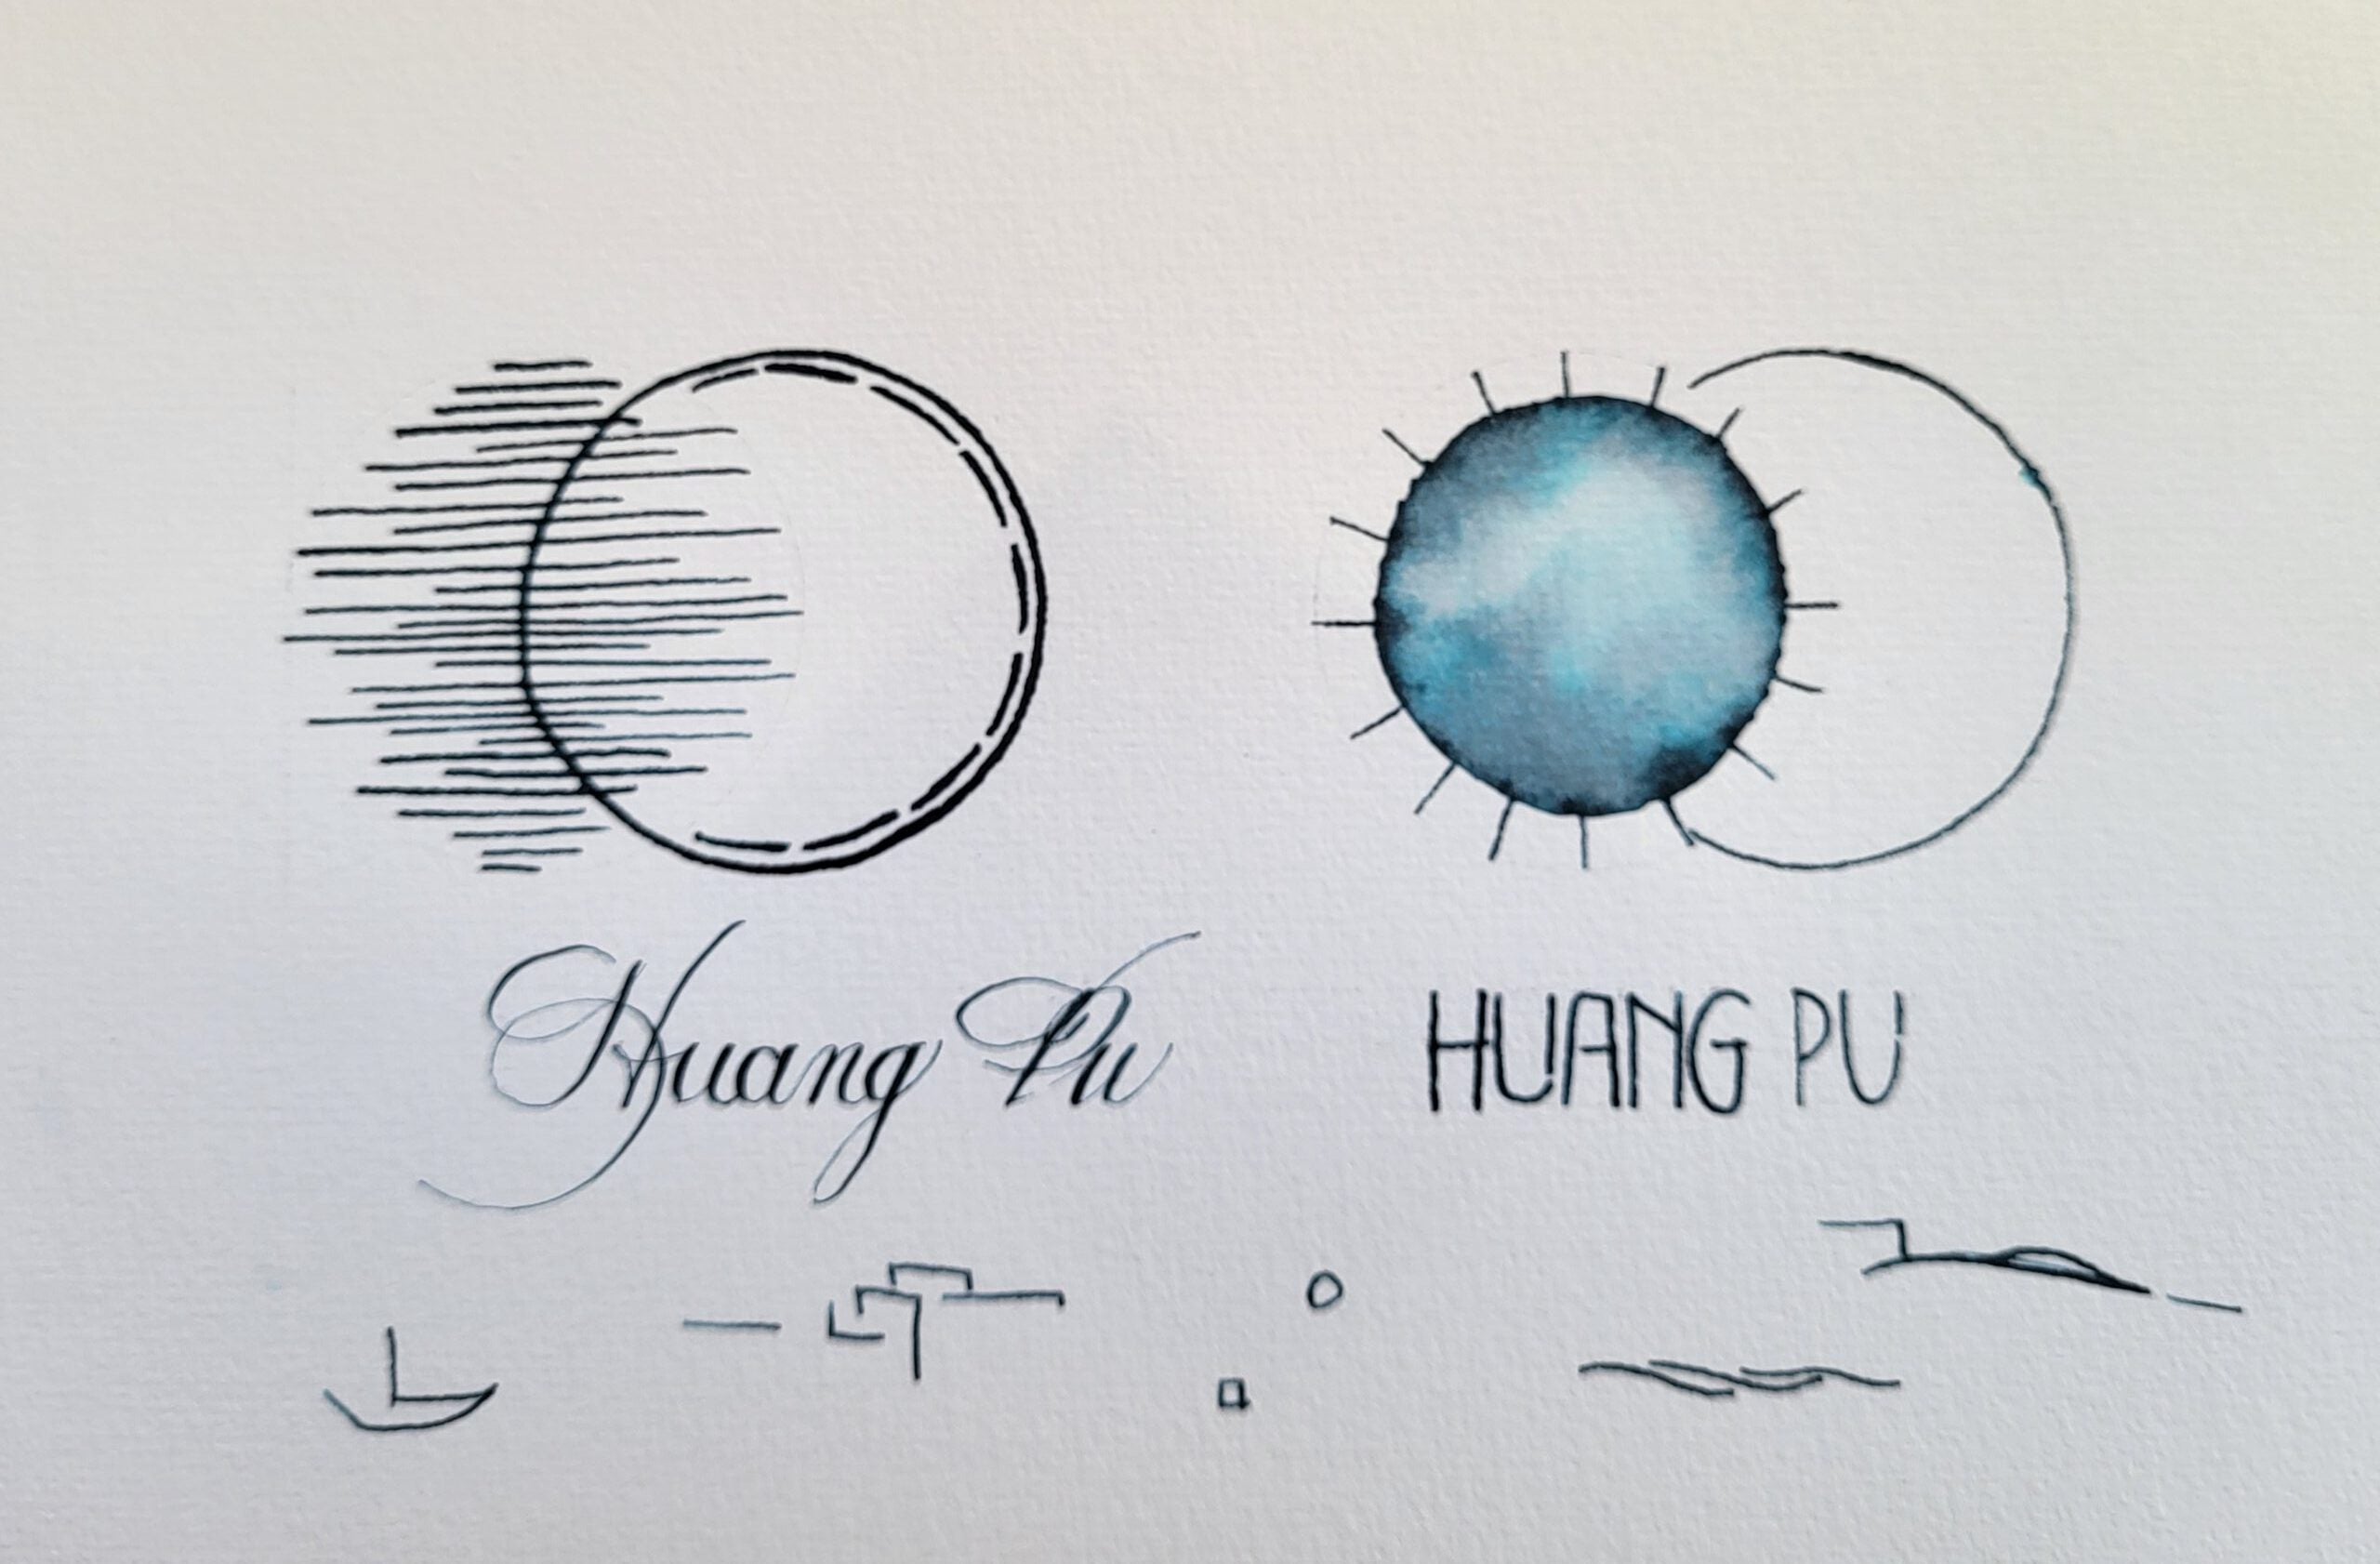 Huang Pu
HUANG PU